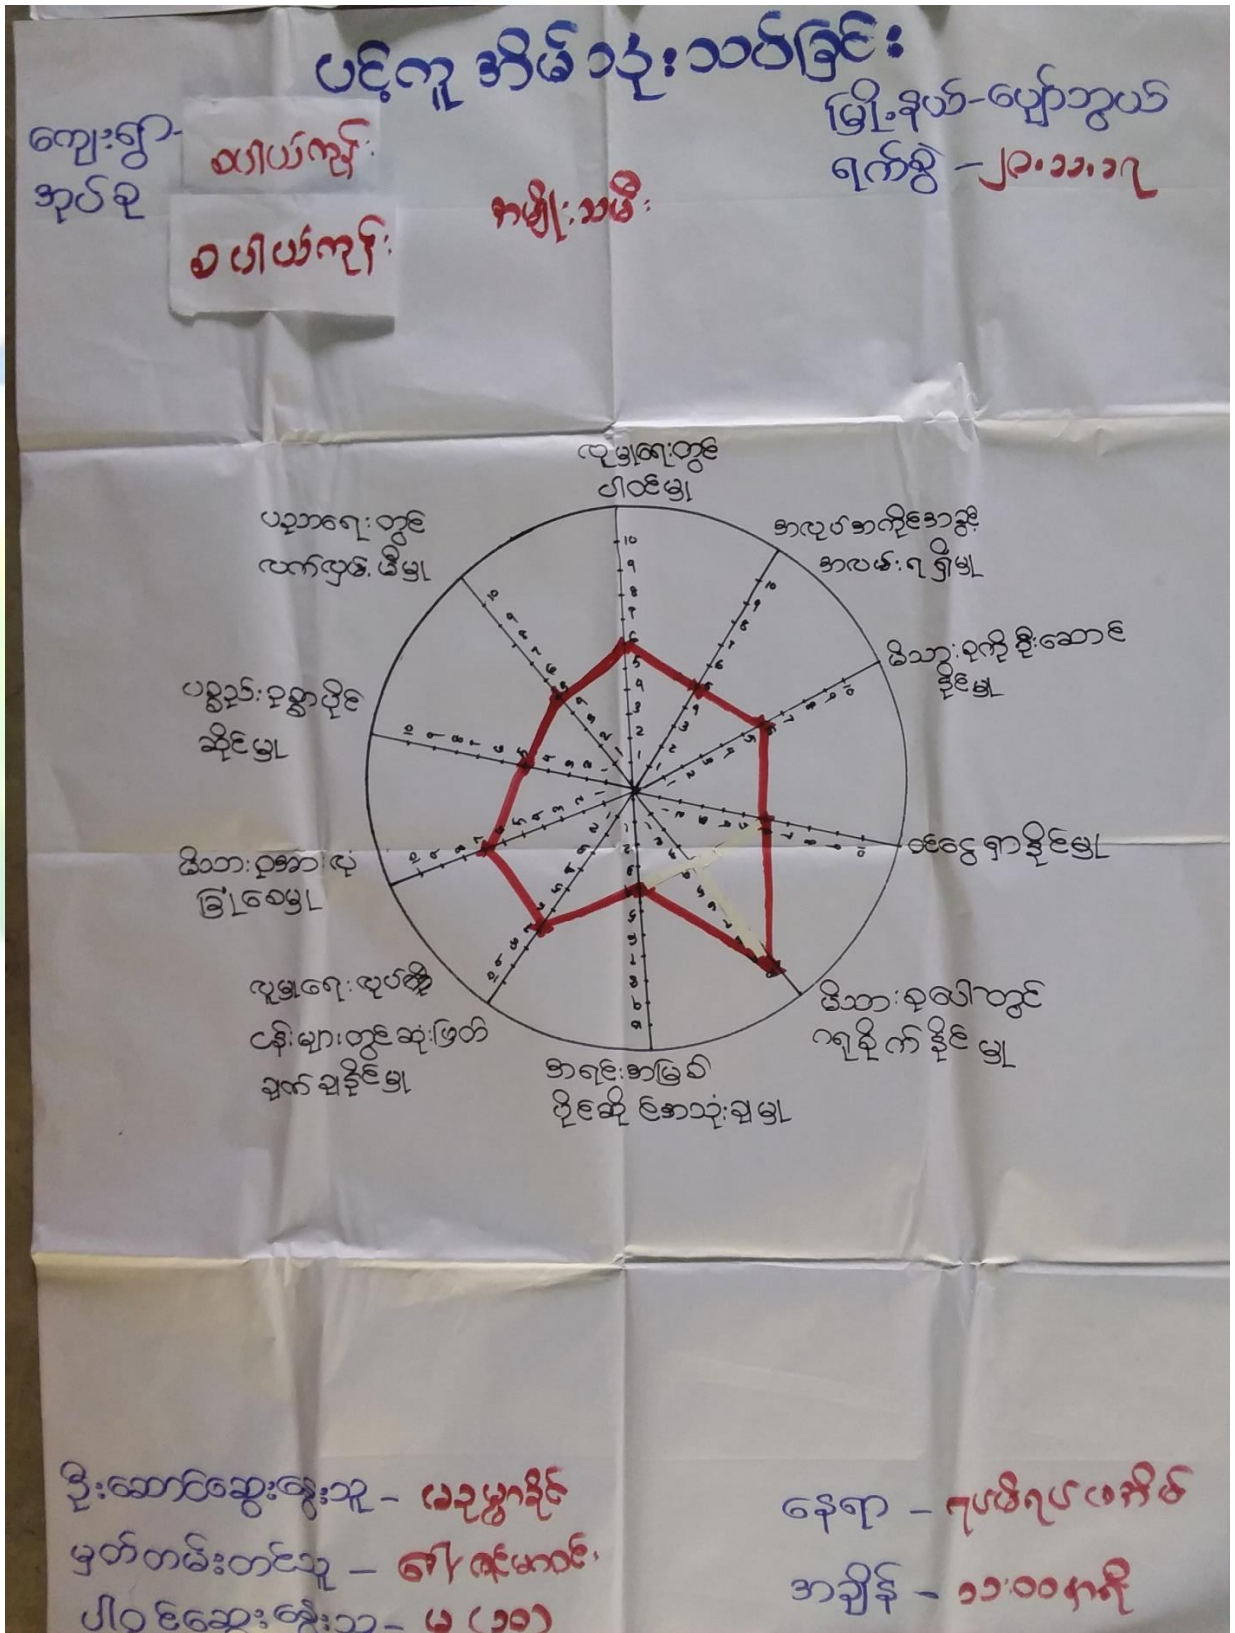 ပင့်ကူအိမ်သုံးသပ်ခြင်း
ကျေးရွာ- စပါယ်ကုန်း
အုပ်စု
စပါယ်ကုန်း
မြို့နယ်-ပျော်ဘွယ်
ရက်စွဲ -၂၉.၁၁.၁၇
အမျိုးသမီး
လူမှုရေးတွင်
ပါဝင်မှု
အလုပ်အကိုင်အခွင့်
အလမ်းရရှိမှု
မိသားစုကိုဦးဆောင်
နိုင်မှု
ဝင်ငွေရှာနိုင်မှု
မိသားစုပေါ်တွင်
ဂရုစိုက်နိုင်မှု
အရင်းအမြစ်
ပိုင်ဆိုင်အသုံးချမှု
လူမှုရေးလုပ်
ငန်းများတွင်ဆုံးဖြတ်
ချက်ချနိုင်မှု
မိသားစုအားလုံ
ခြုံစေမှု
ပစ္စည်းဥစ္စာပိုင်
ဆိုင်မှု
ပညာရေးတွင်
လက်လှမ်းမီမှု
10
9
8
7
6
5
4
3
2
1
ဦးဆောင်ဆွေးနွေးသူ -
မှတ်တမ်းတင်သူ - ဒေါ်ဇင်မာဝင်း
ပါဝင်ဆွေးနွေးသူ - မ (၁၀)
နေရာ - ရပ်မိရပ်ဖအိမ်
အချိန် - ၁၁:၀၀နာရီ